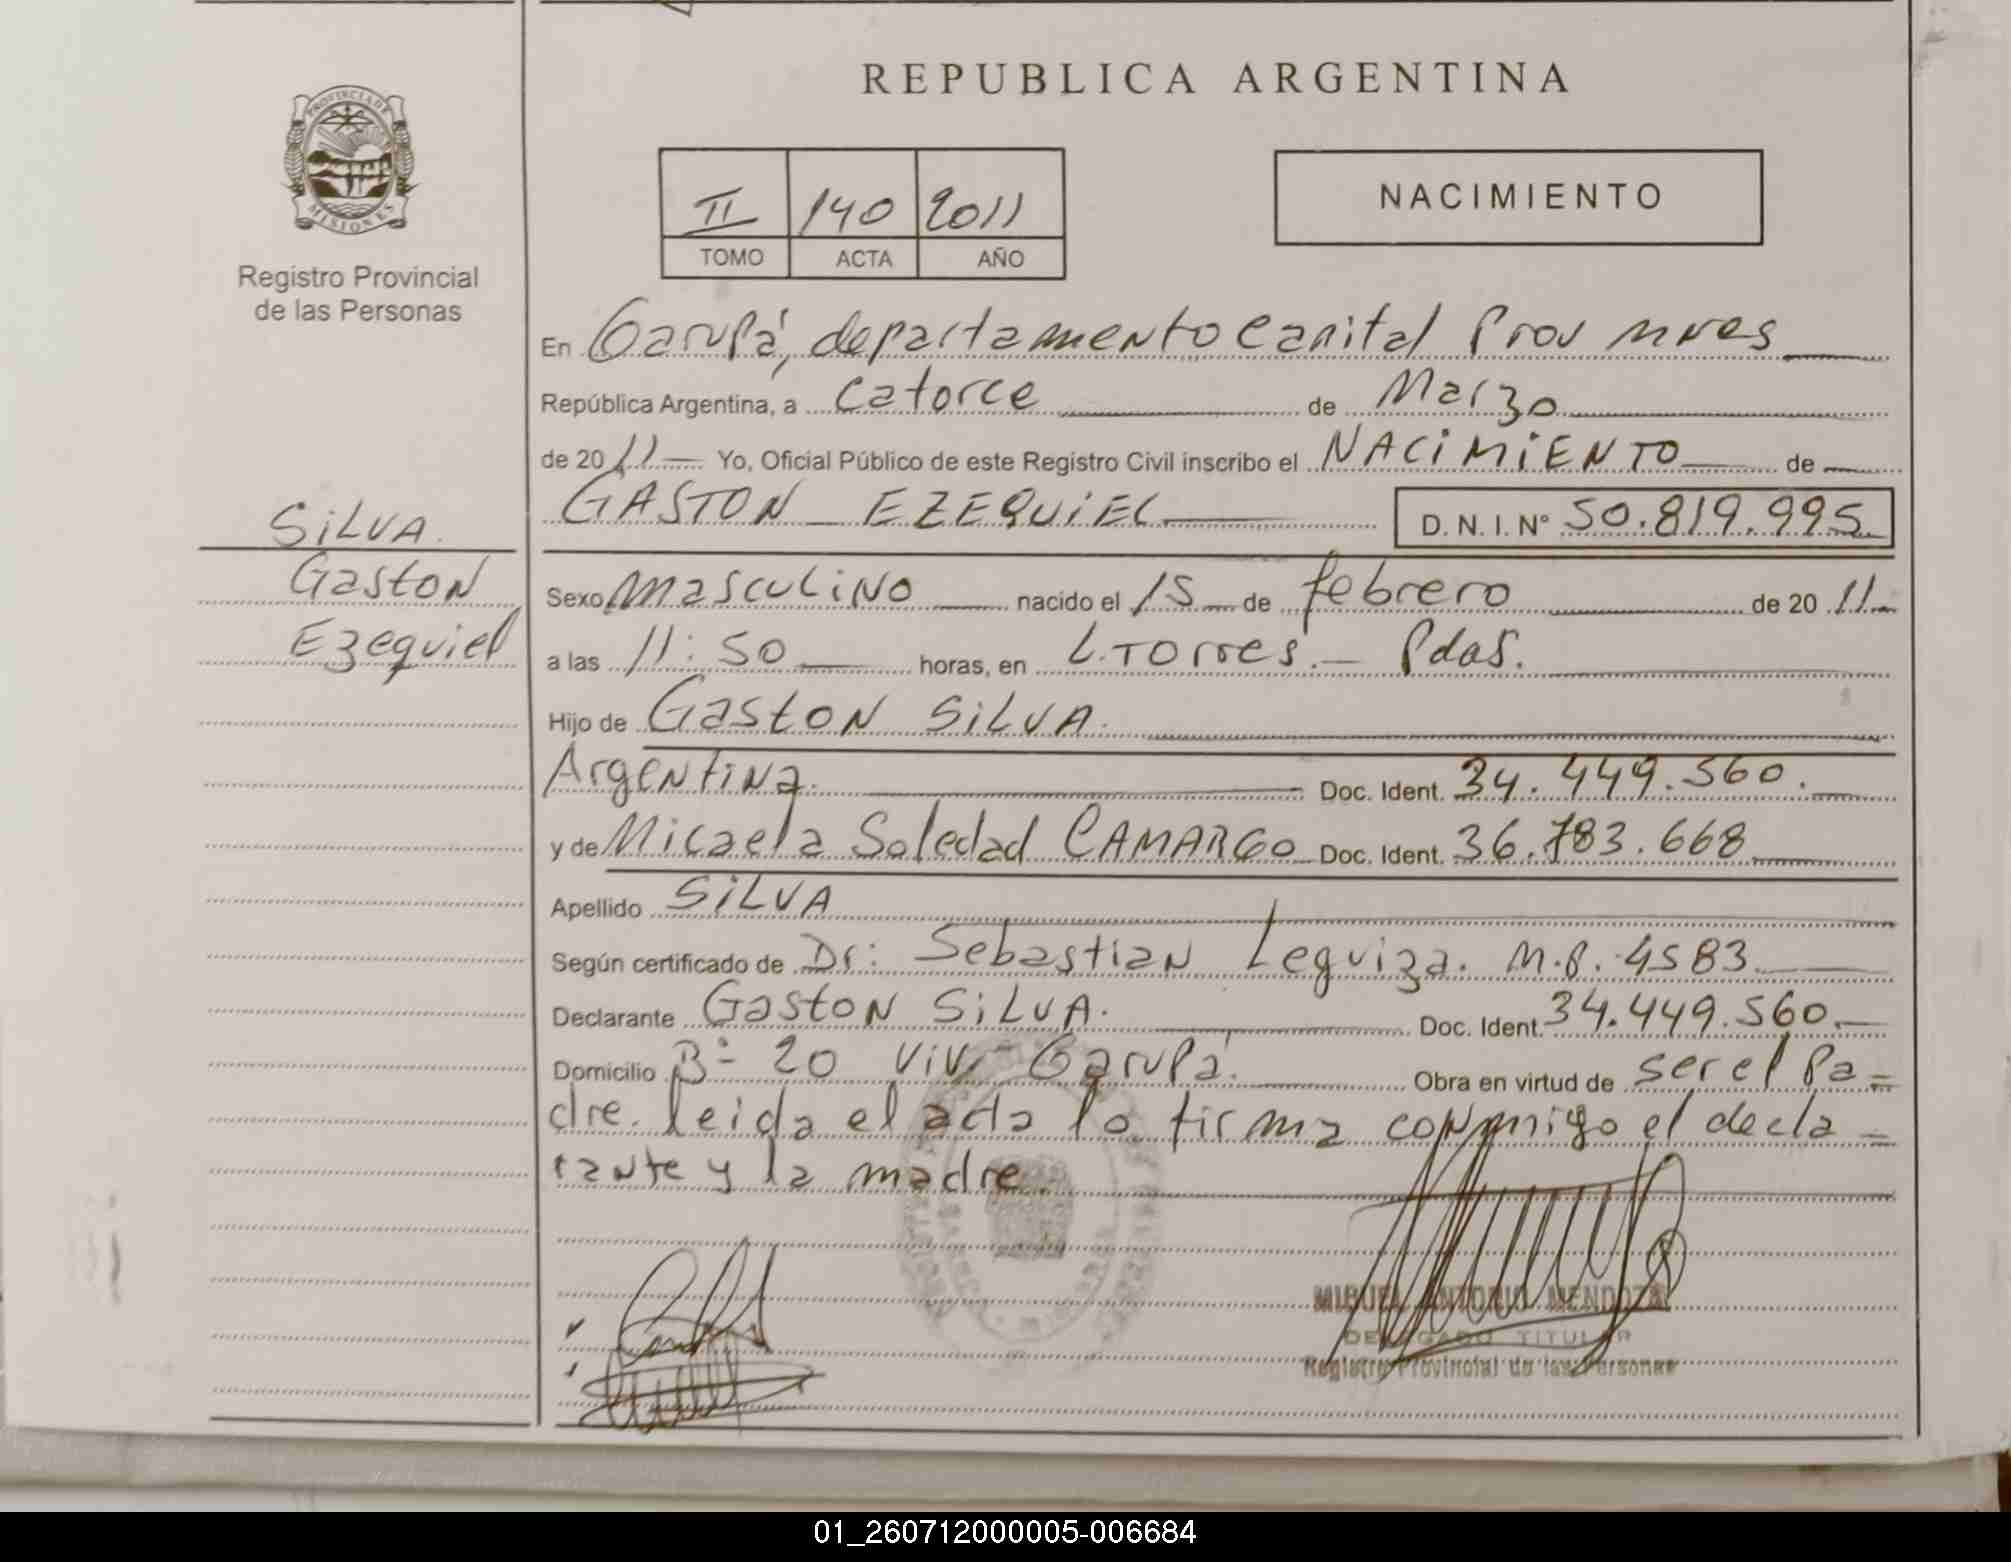 REPUBLICA ARGENTINA
PROVINCIA DE
MISIONES
Registro Provincial
de las Personas
II 140 2011
TOMO ACTA AÑO
NACIMIENTO
En Garupá, departamento Capital Prov Mnes
República Argentina, a catorce de Marzo
de 2011 Yo, Oficial Público de este Registro Civil inscribo el NACIMIENTO de
GASTON EZEQUIEL D. N. I. Nº 50.819.995
SILVA
Gaston
Ezequiel
Sexo masculino nacido el 15 de febrero de 2011
a las 11:50 horas, en L. Torres. - Pdas.
Hijo de Gaston SILVA.
Argentina. Doc. Ident. 34.449.560.
y de Micaela Soledad CAMARGO Doc. Ident. 36.783.668
Apellido SILVA
Según certificado de Dr: Sebastian Leguiza. M.P. 4583
Declarante Gaston SILVA. Doc. Ident. 34.449.560.
Domicilio Bº 20 viv. Garupá. Obra en virtud de ser el Pa-
dre. leida el acta lo firma conmigo el decla-
rante y la madre.
MIGUEL ANTONIO MENDOZA
DELEGADO TITULAR
Registro Provincial de las Personas
01_260712000005-006684